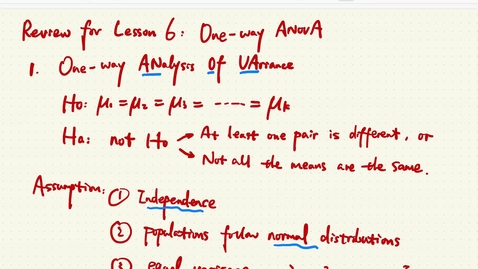 Review for Lesson 6: One-way ANOVA
1. One-way ANalysis Of VAriance
Ho: μ1 = μ2 = μ3 = ----- = μk
Ha: not Ho → At least one pair is different, or
→ Not all the means are the same.
Assumption: ① Independence
② populations follow normal distributions
③ equal